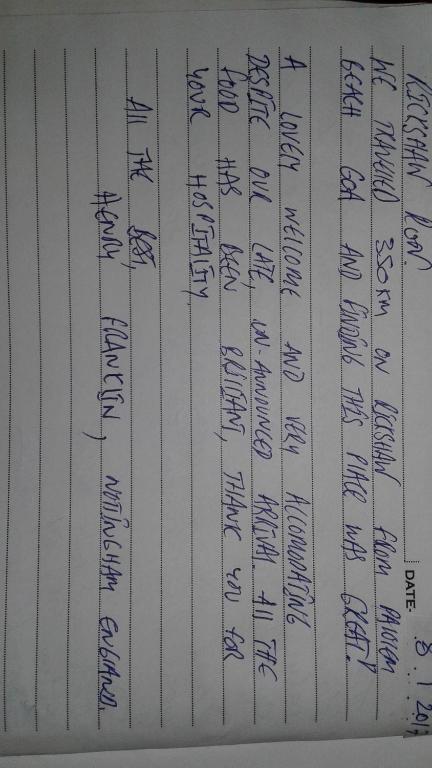 DATE- 8.1.2017
RICKSHAW RUN
WE TRAVELLED 350KM ON RICKSHAW FROM PALOLEM
BEACH GOA AND FINDING THIS PLACE WAS GREAT!
A LOVELY WELCOME AND VERY ACCOMODATING
DESPITE OUR LATE, UN-ANNOUNCED ARRIVAL. All THE
FOOD HAS BEEN BRILLIANT, THANK YOU FOR
YOUR HOSPITALITY.
All THE BEST,
HENRY FRANKLIN, NOTTINGHAM ENGLAND.